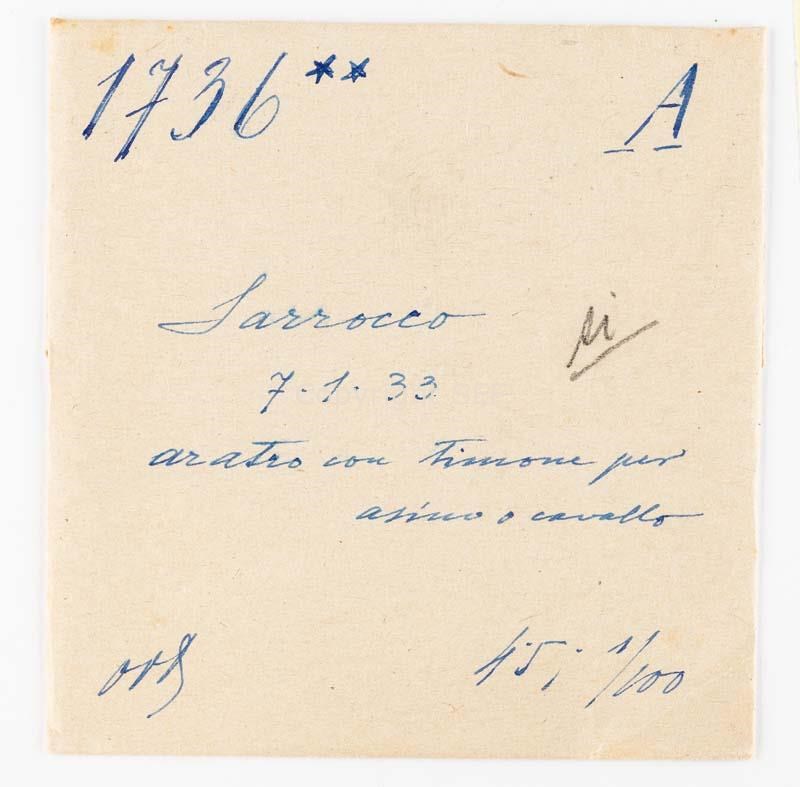 1736** A
Sarrocco
7.1.33
aratro con timone per
asino o cavallo
45; 1/100